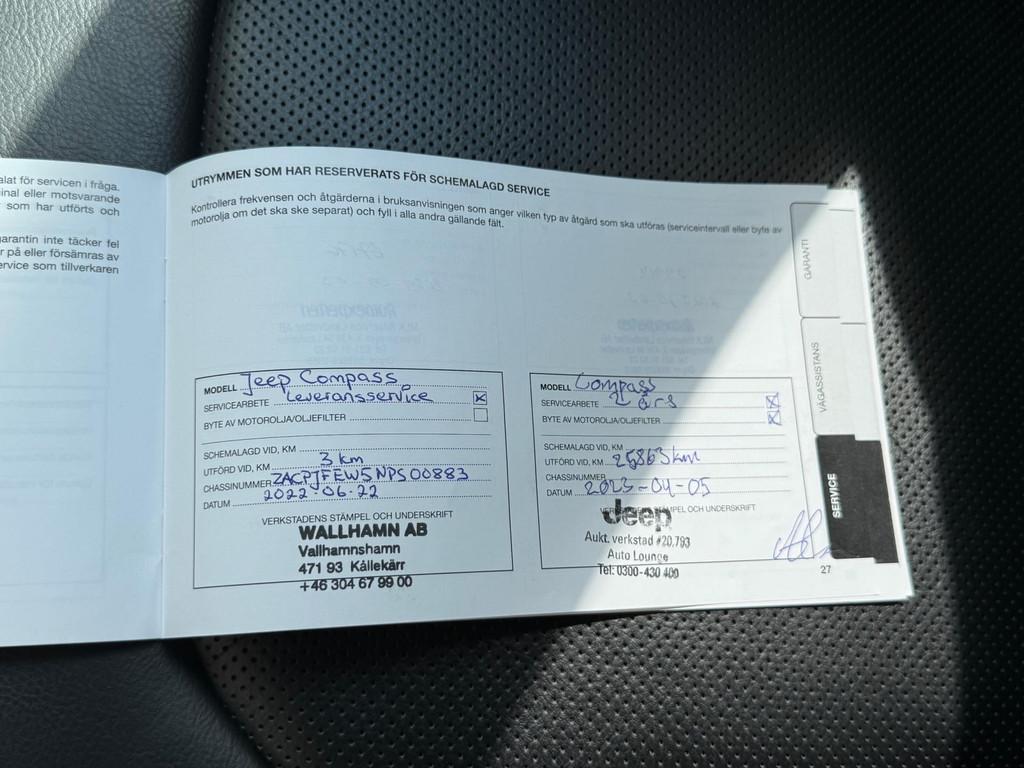 alat för servicen i fråga.
inal eller motsvarande
som har utförts och
arantin inte täcker fel
r på eller försämras av
ervice som tillverkaren
UTRYMMEN SOM HAR RESERVERATS FÖR SCHEMALAGD SERVICE
Kontrollera frekvensen och åtgärderna i bruksanvisningen som anger vilken typ av åtgärd som ska utföras (serviceintervall eller byte av
motorolja om det ska ske separat) och fyll i alla andra gällande fält.
MODELL Jeep Compass
SERVICEARBETE Leveransservice
BYTE AV MOTOROLJA/OLJEFILTER
SCHEMALAGD VID, KM
UTFÖRD VID, KM 3 km
CHASSINUMMER ZACPJFEW5NPS00883
DATUM 2022-06-22
VERKSTADENS STÄMPEL OCH UNDERSKRIFT
WALLHAMN AB
Vallhamnshamn
471 93 Kållekärr
+46 304 67 99 00
MODELL Compass
SERVICEARBETE 2 års
BYTE AV MOTOROLJA/OLJEFILTER
SCHEMALAGD VID, KM
UTFÖRD VID, KM 25863 km
CHASSINUMMER
DATUM 2023-04-05
STÄMPEL OCH UNDERSKRIFT
Jeep
Aukt. verkstad #20,793
Auto Lounge
Tel: 0300-430 400
27
GARANTI
VÄGASSISTANS
SERVICE